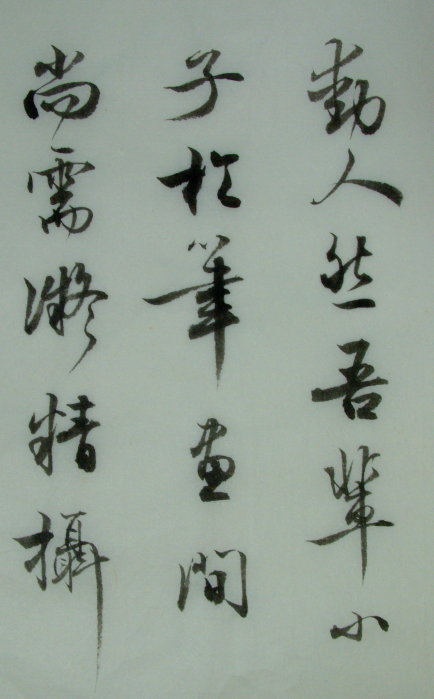 動人然吾輩小
子於筆畫間
尚需凝精攝